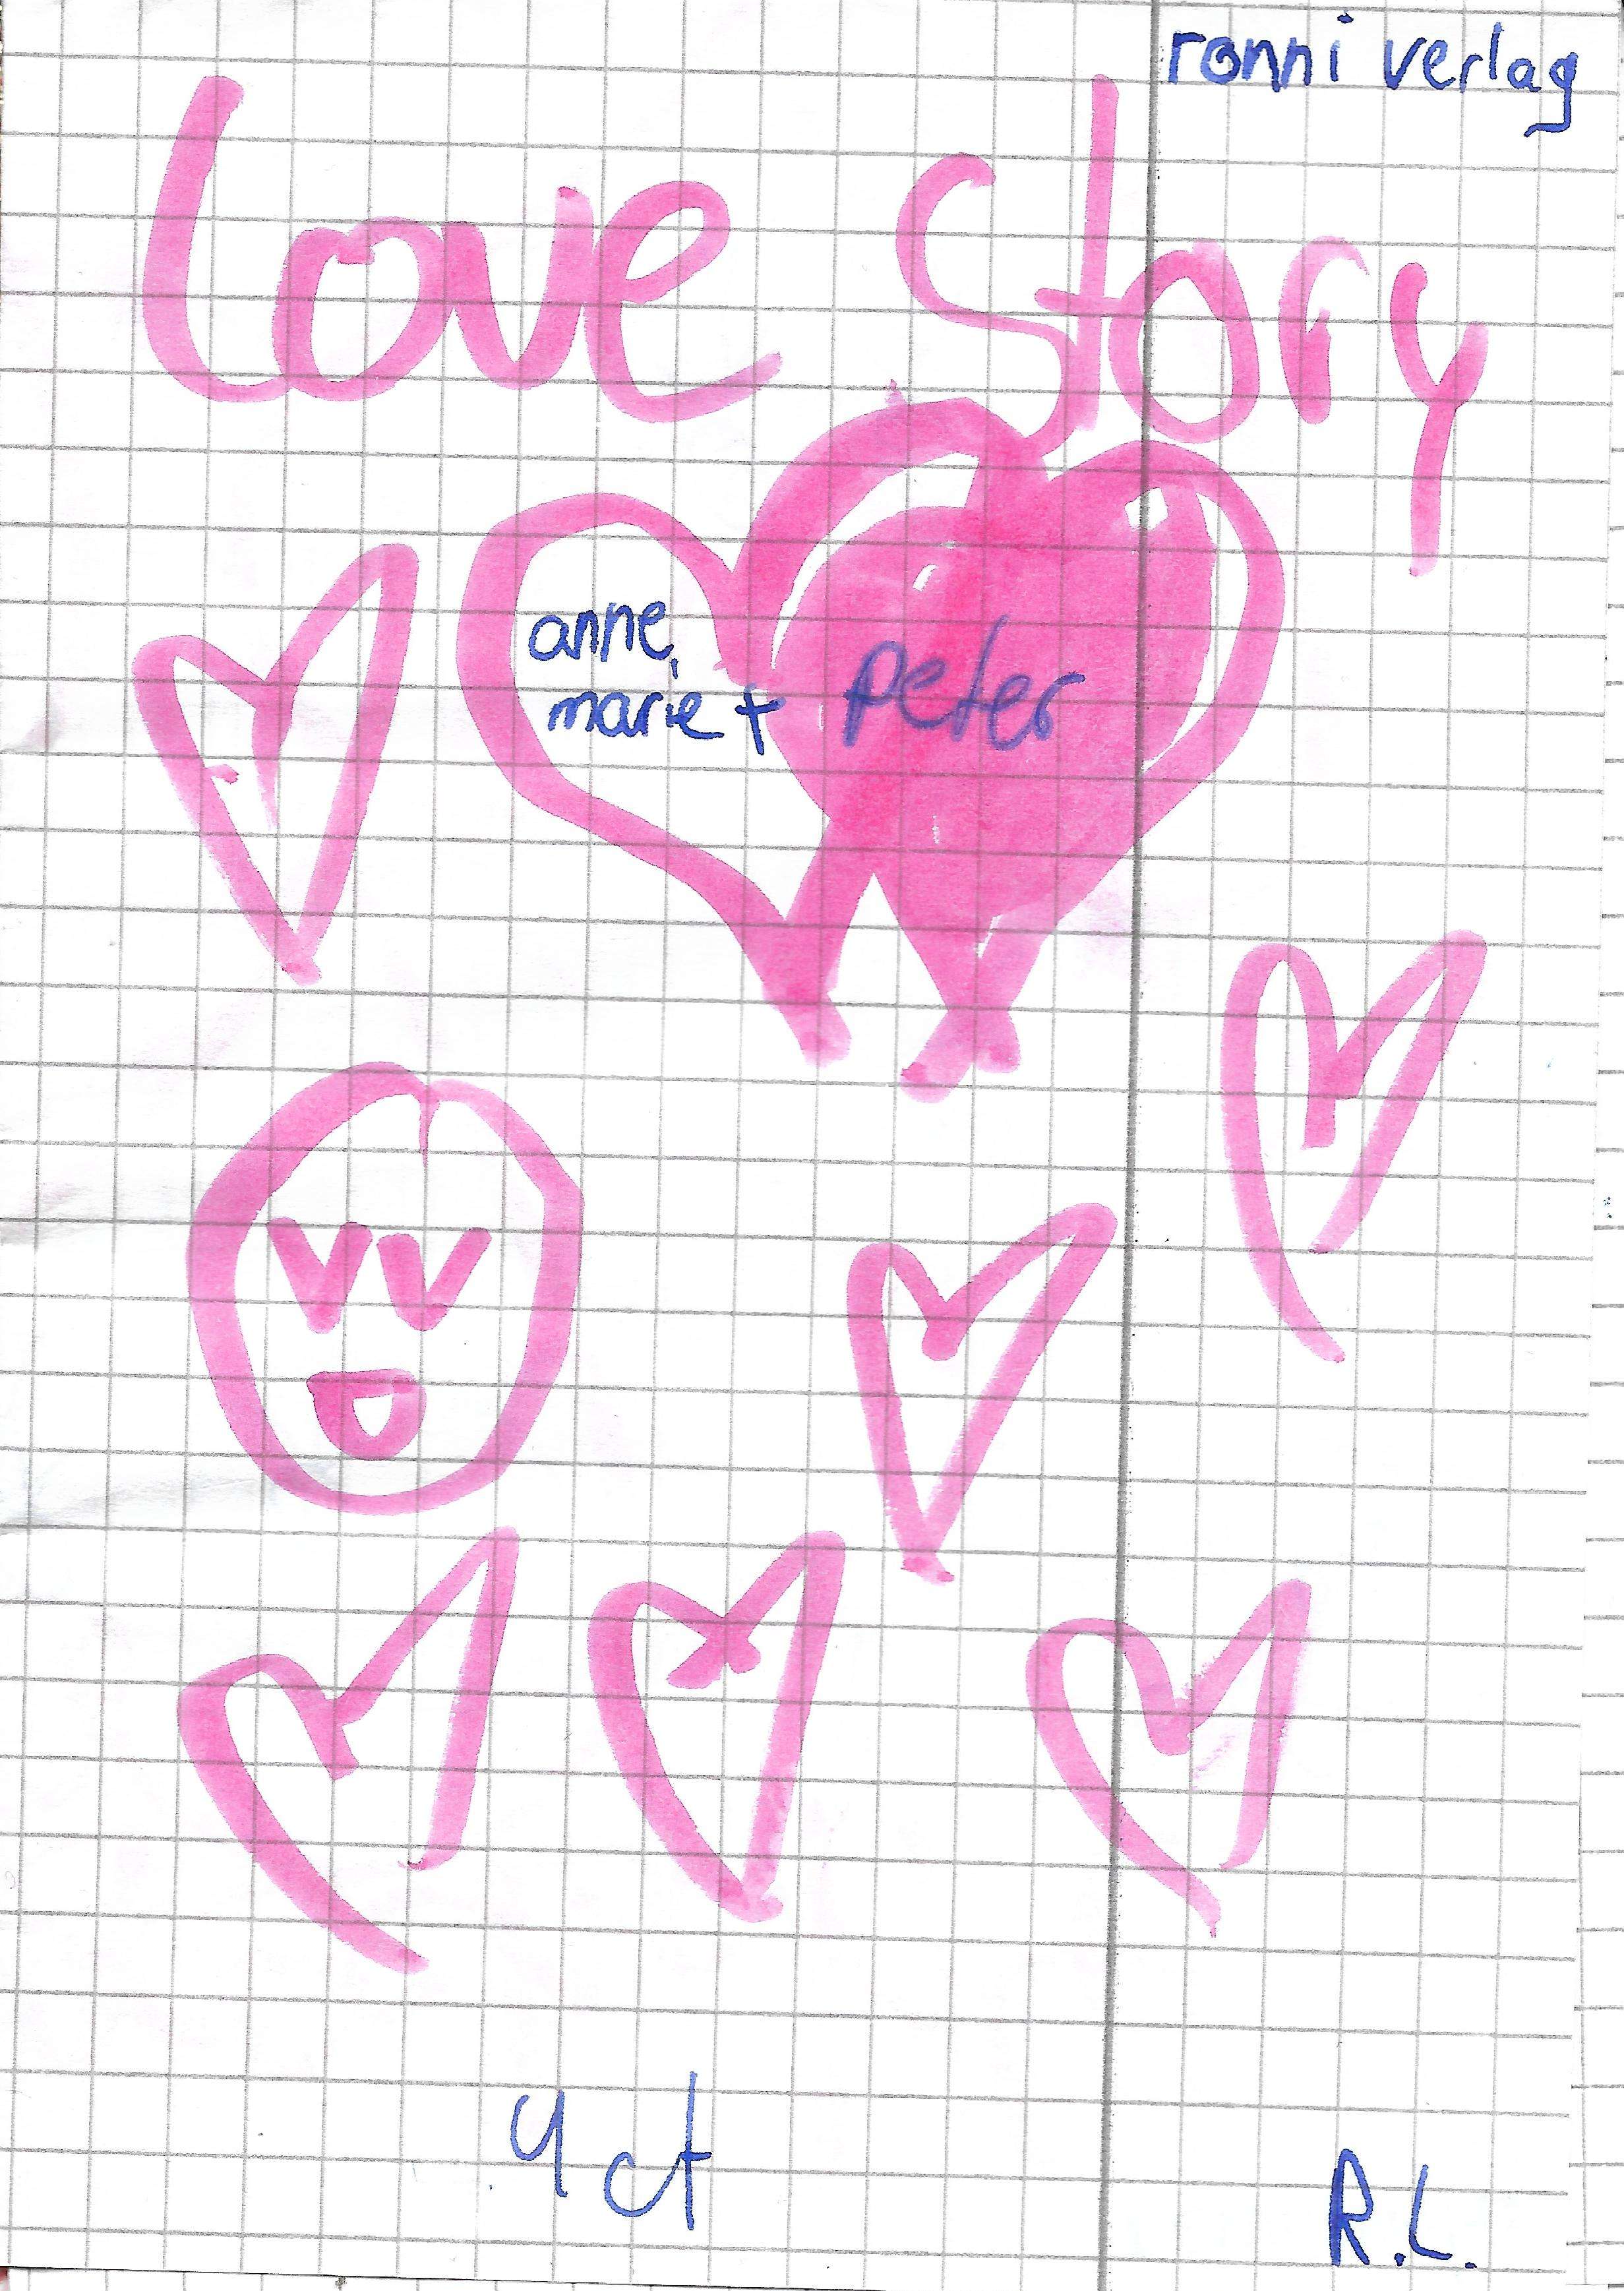 ronni verlag
Love Story
anne,
marie + peter
4 ct
R.L.